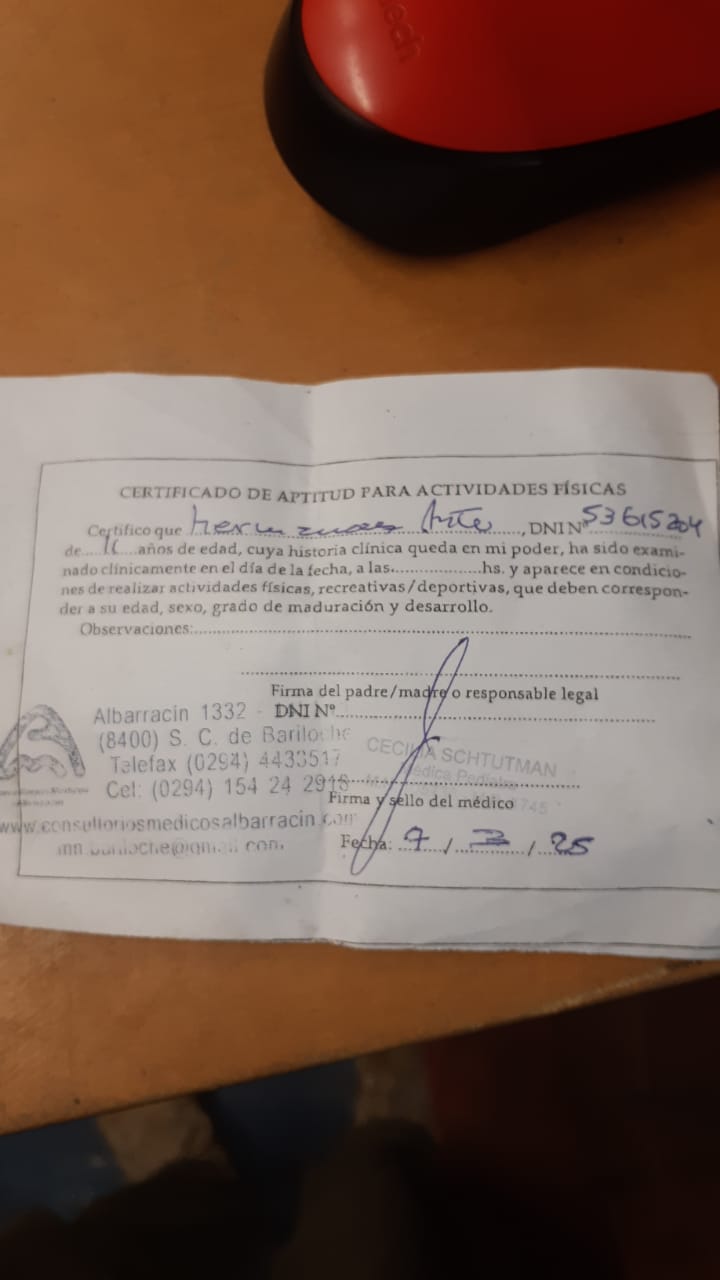 ech
CERTIFICADO DE APTITUD PARA ACTIVIDADES FÍSICAS
Certifico que, DNI Nº 53615204
de años de edad, cuya historia clínica queda en mi poder, ha sido exami-
nado clínicamente en el día de la fecha, a las..................hs. y aparece en condicio-
nes de realizar actividades físicas, recreativas/deportivas, que deben correspon-
der a su edad, sexo, grado de maduración y desarrollo.
Observaciones:
Firma del padre/madre o responsable legal
DNI Nº
Albarracin 1332 -
(8400) S. C. de Bariloche
Telefax (0294) 4433517
Cel: (0294) 154 24 2918
www.consultoriosmedicosalbarracin.com
CECILIA SCHTUTMAN
Médica Pediatra
Firma y sello del médico
Fecha: 7 / 3 / 25